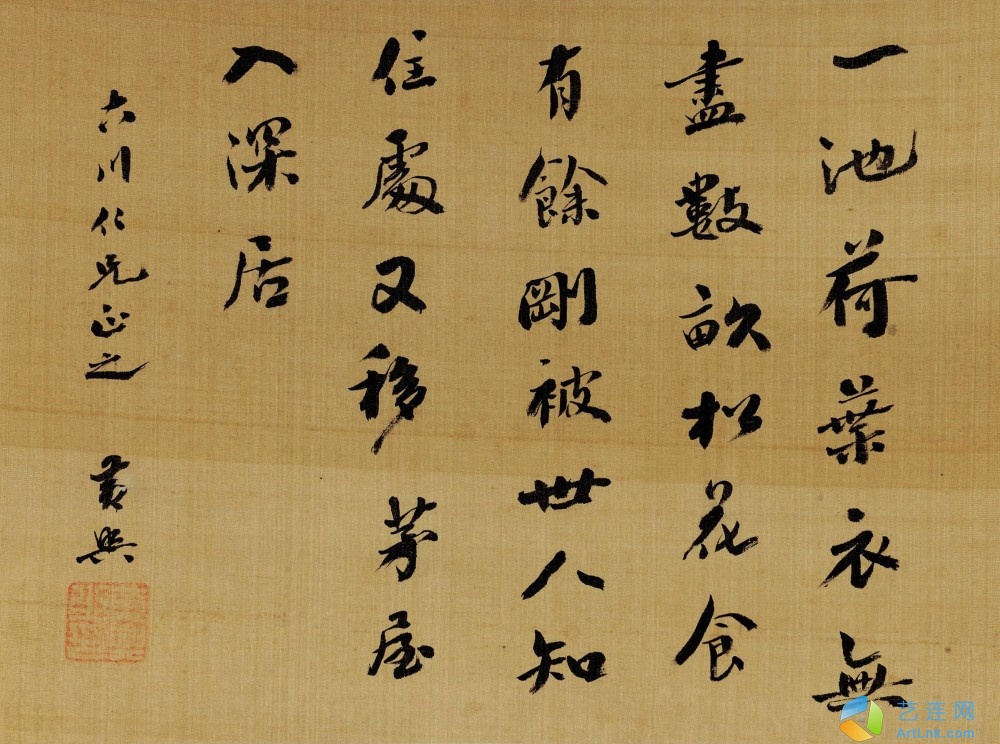 一池荷葉衣無
盡數畝松花食
有餘剛被世人知
住處又移茅屋
入深居
川仁兄正之 黄興
艺连网
ArtLnk.com